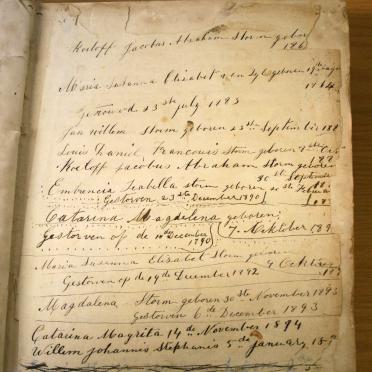 Roeloff Jacobus Abraham Storm gebor
186
Maria Susanna Elizabet
Getrouwd 23ste July 1883
Jan Willem Storm geboren 23ste September 188
Louis Daniel Francouis Storm geboren
Roeloff Jacobus Abraham Storm geboren
30ste September
Embrencia Isabella Storm geboren 20ste Februa
Gestorven 23ste December 1890
Catarina Magdelena geboren
Gestorven op de 10de December 1890
7 October 189
Maria Susanna Elizabet Storm gebor
9 October
Gestorven op de 19de December 1892
Magdalena Storm geboren 30ste November 1893
Gestorven 6de December 1893
Catarina Magrita 14de November 1894
Willem Johannis Stephanis 5de January 18